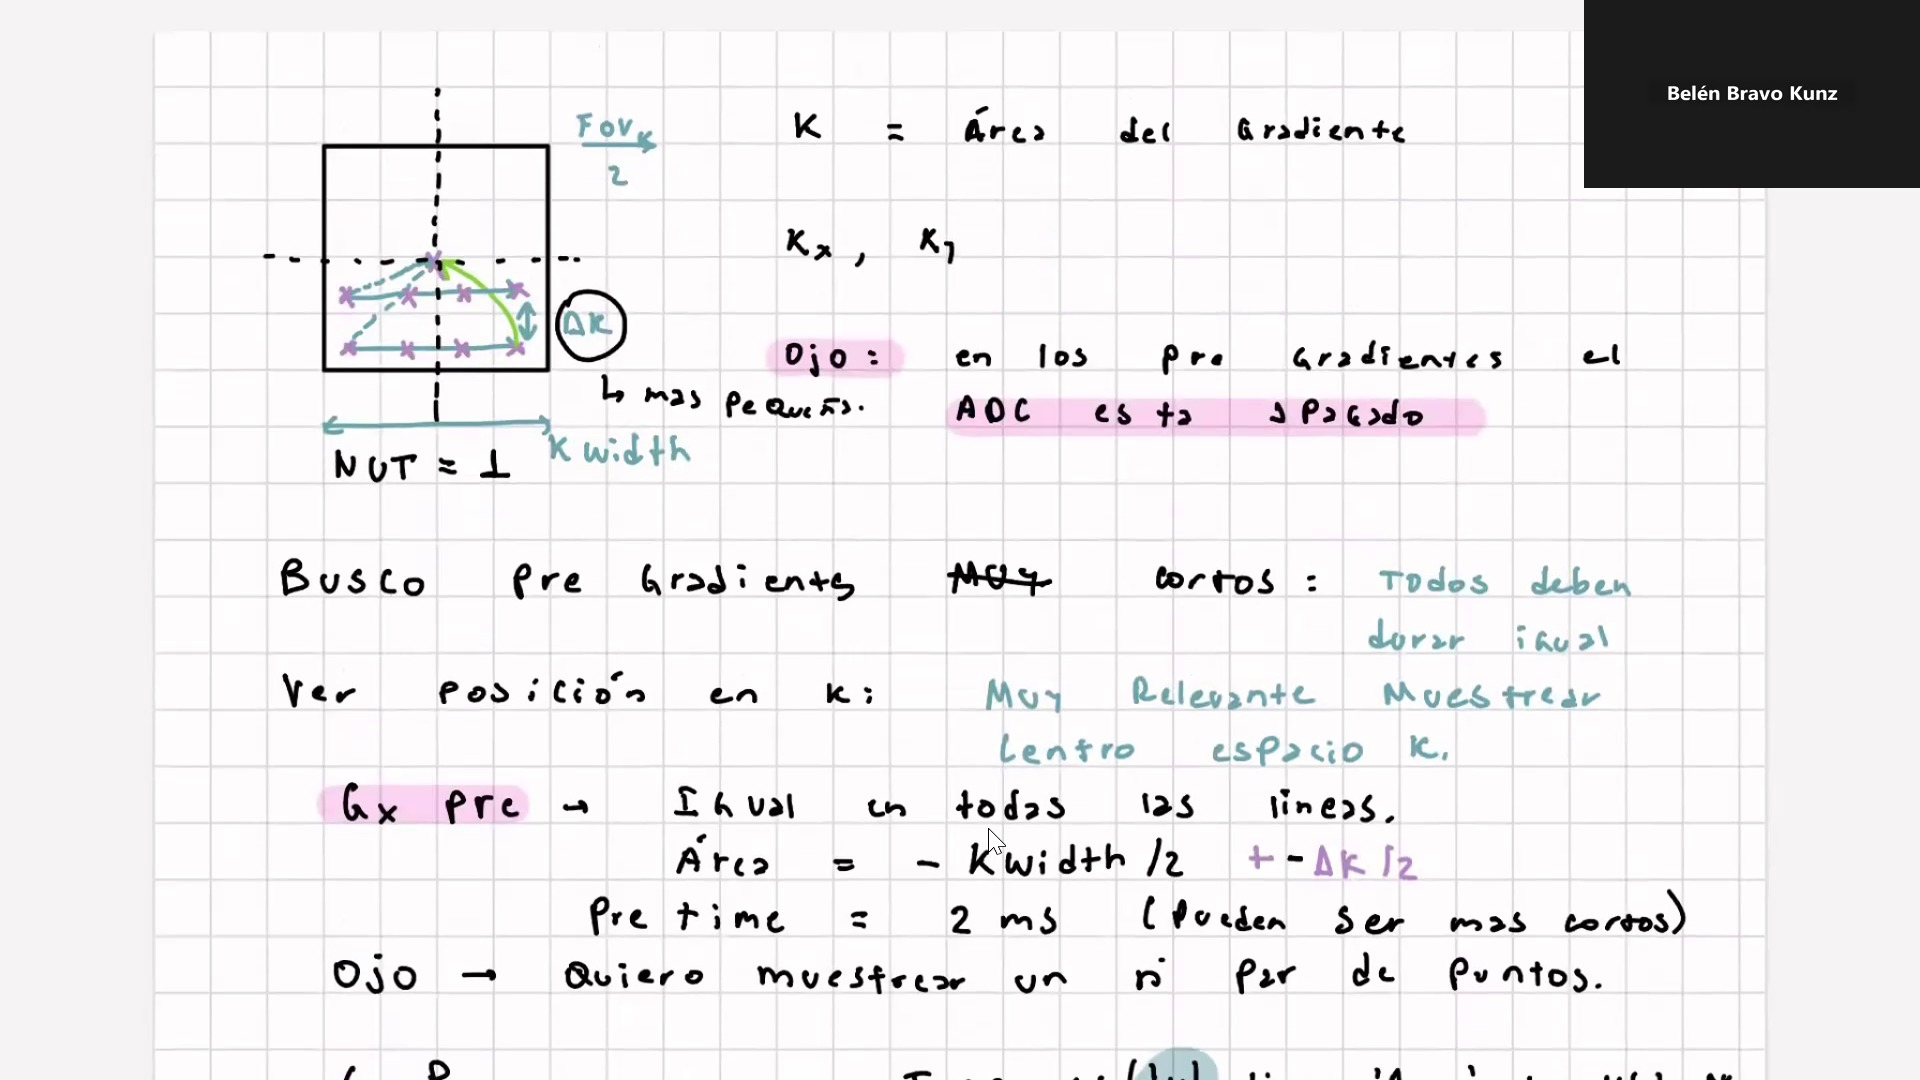 Belén Bravo Kunz
FOVk
2
K = Área del Gradiente
Kx, Ky
ΔK
↳ mas pequeño.
Ojo: en los pre Gradientes el
ADC esta apagado
K width
NUT = 1
Busco pre Gradients MUY cortos: Todos deben
durar igual
Ver posición en K: Muy Relevante Muestrear
Centro espacio K.
Gx pre → Igual en todas las lineas.
Área = - Kwidth/2 + - ΔK/2
Pre time = 2 ms (Pueden ser mas cortos)
Ojo → Quiero muestrear un n° par de puntos.